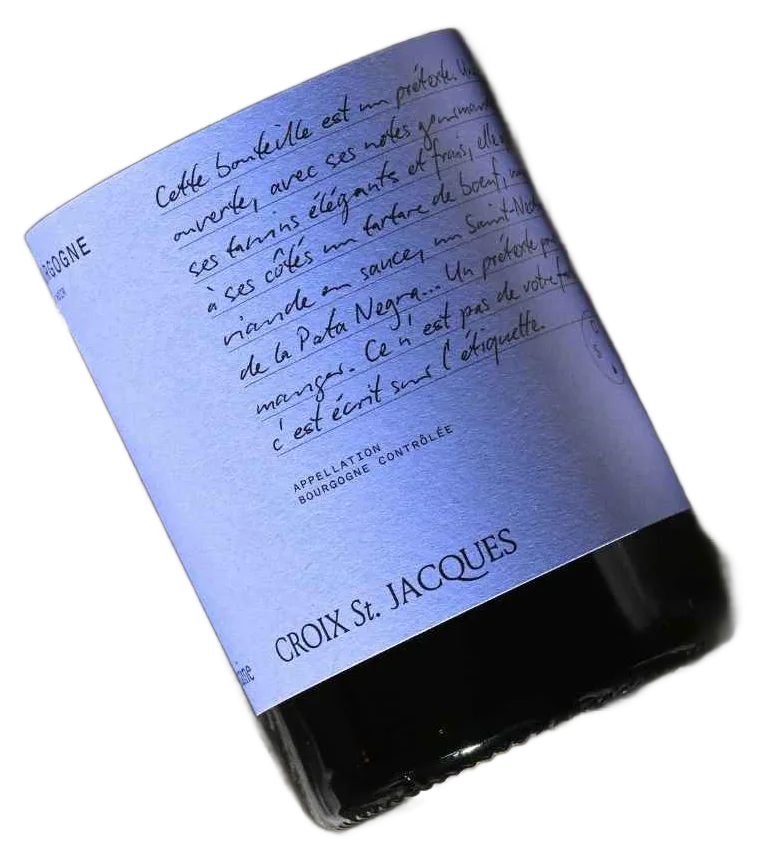 Cette bouteille est un prétexte. Un
ouverte, avec ses notes gourman
ses tanins élégants et frais, elle
à ses côtés un tartare de boeuf,
viande en sauce, un Saint-Nec
de la Pata Negra... Un prétexte
manger. Ce n'est pas de votre fa
c'est écrit sur l'étiquette.
APPELLATION
BOURGOGNE CONTRÔLÉE
CROIX St. JACQUES
RGOGNE